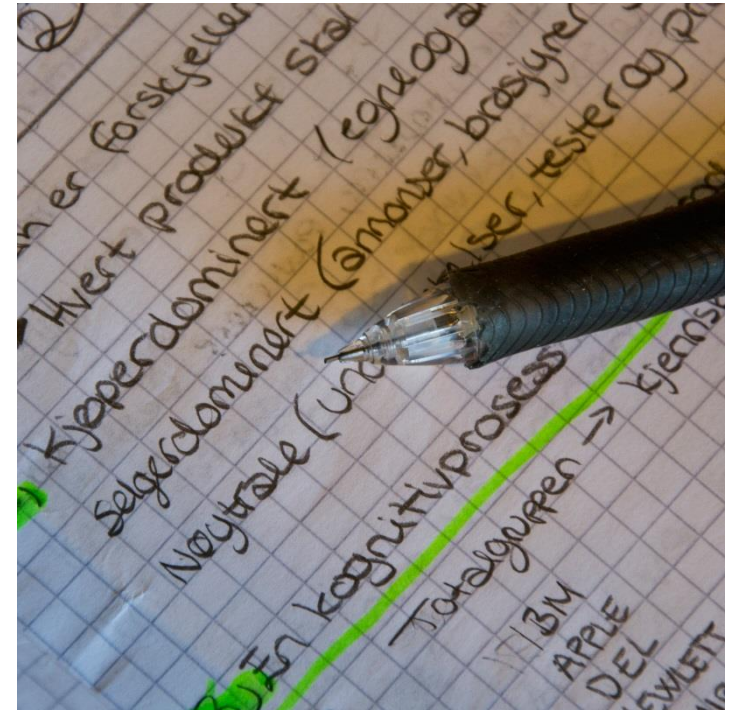 er forskjeller
Hvert produkt skal
Kjøperdominert (egne og
Selgerdominert (annonser, brosjyrer
Nøytrale (und lser, tester og pr
B) En kognitiv prosess
Totalgruppen → kjennse
IBM
APPLE
DEL
EWLETT